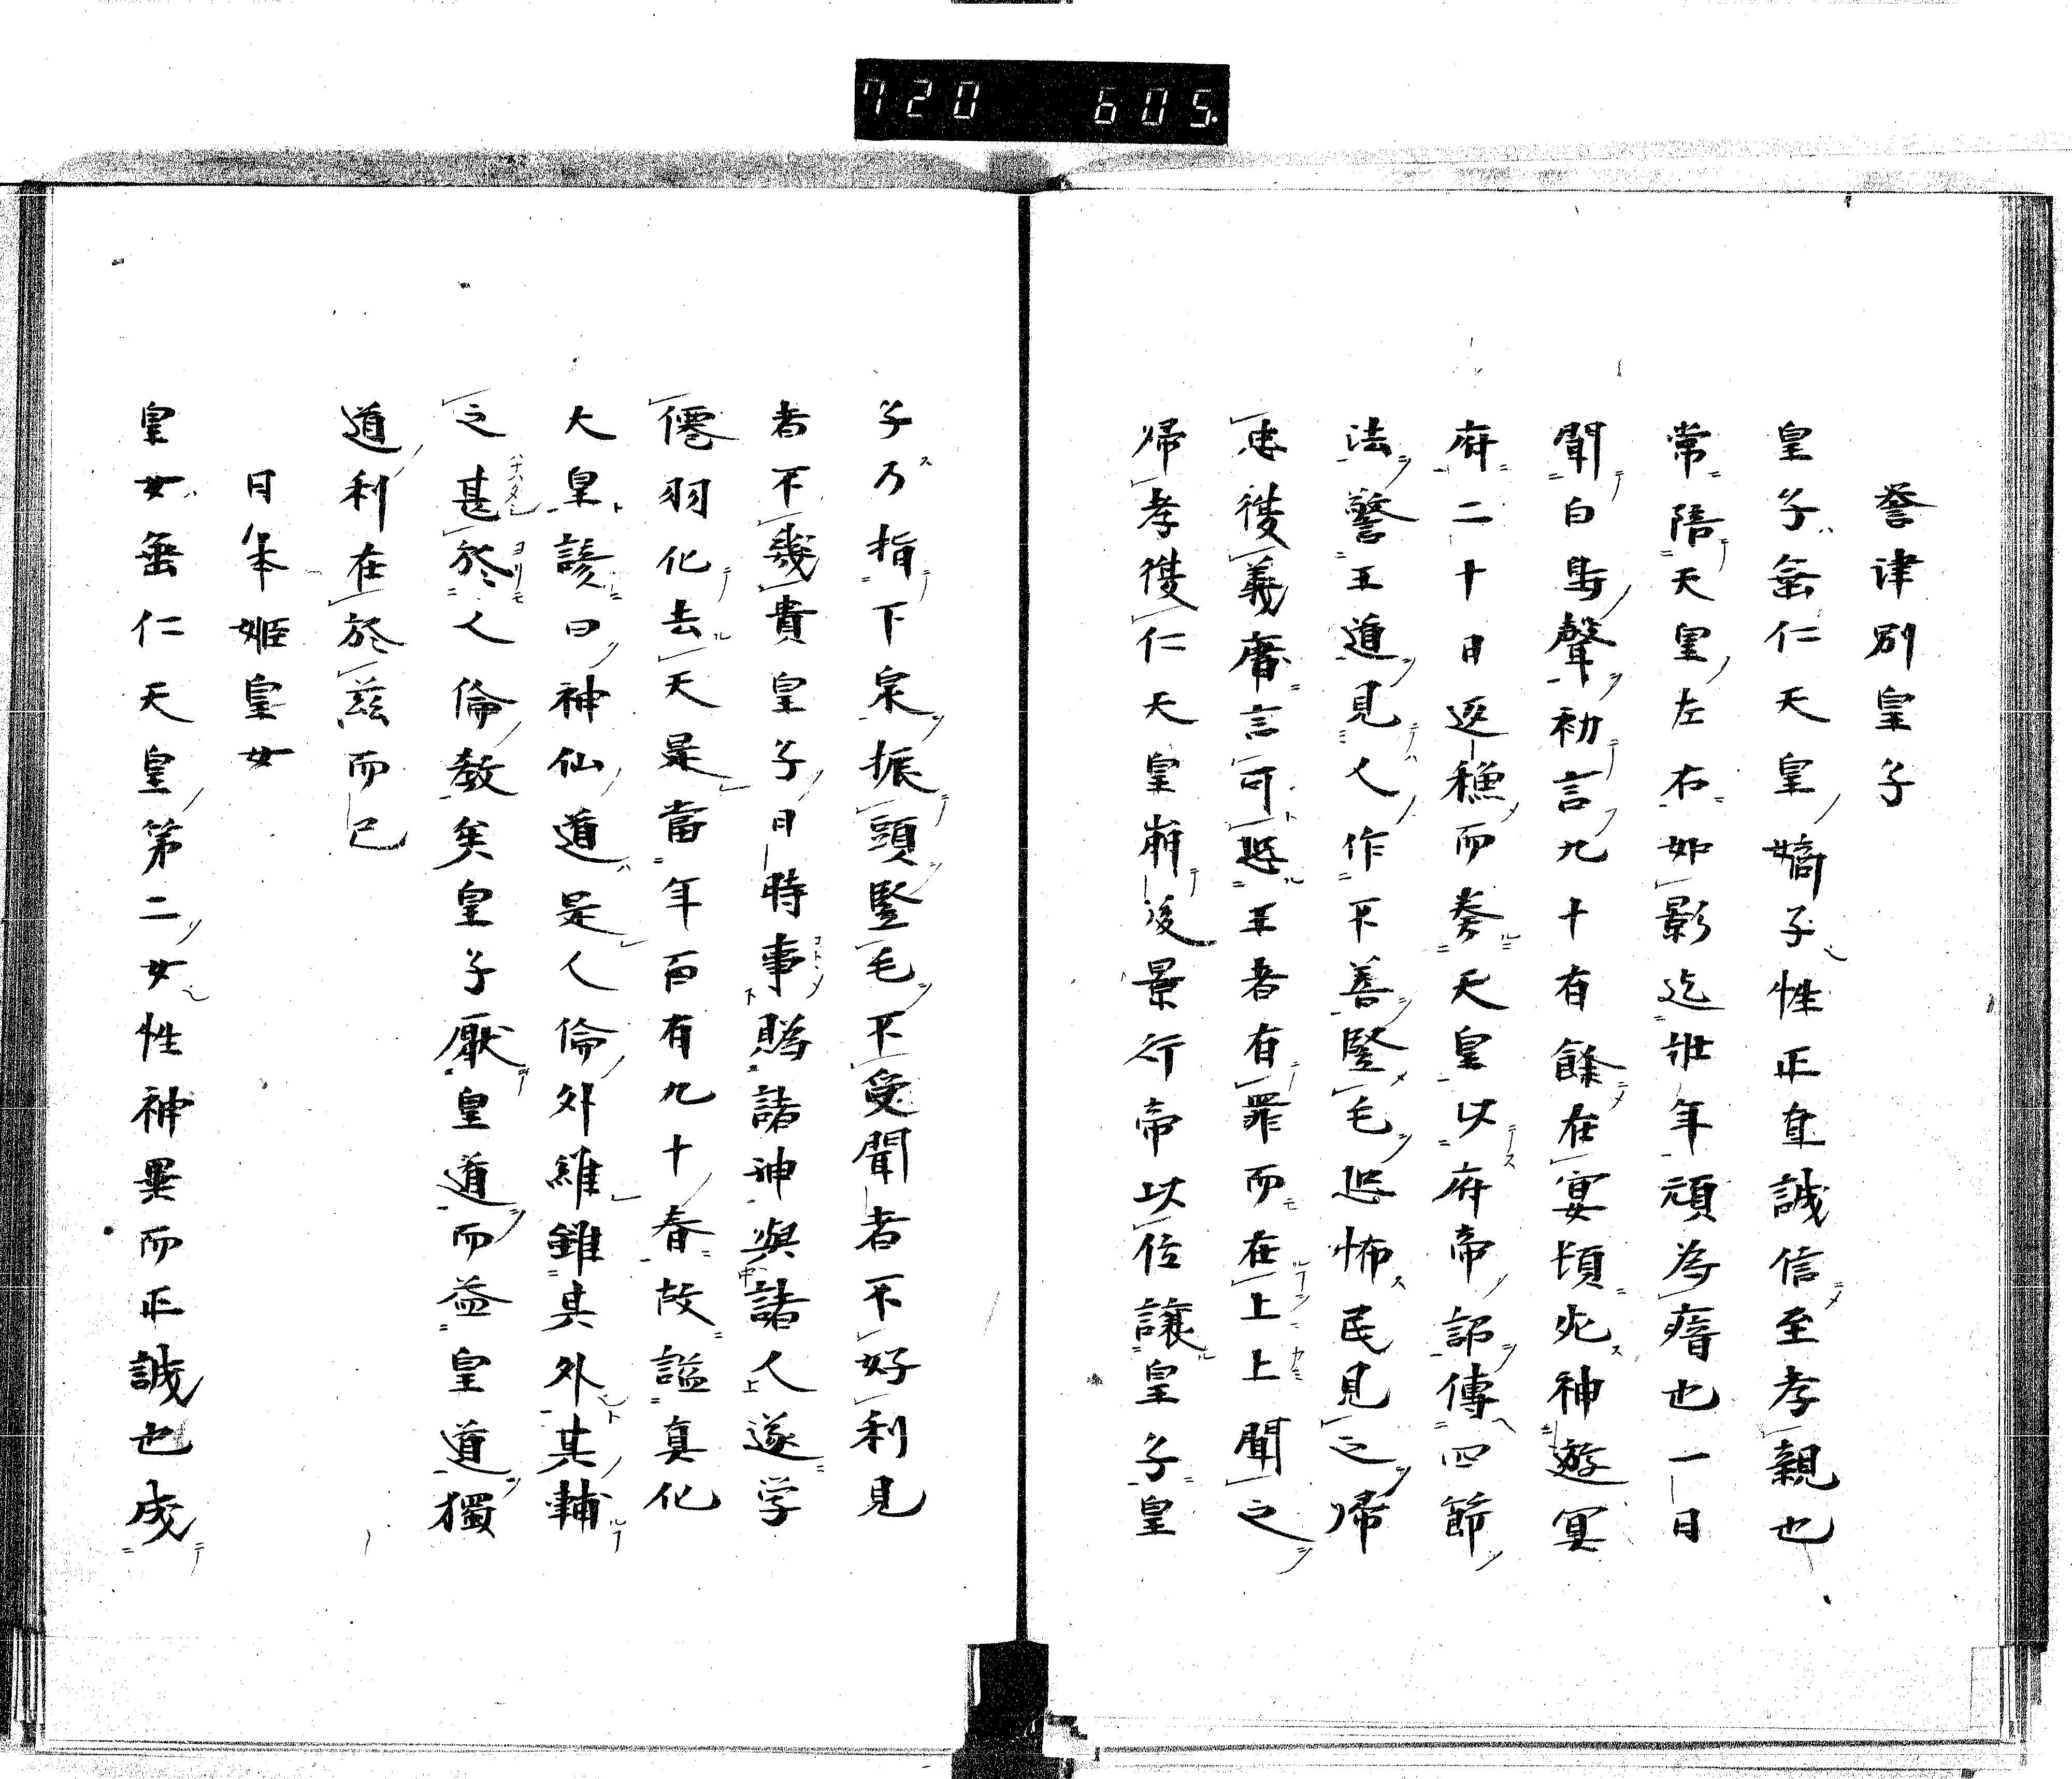 720 605.
誉津別皇子
皇子垂仁天皇嫡子性正直誠信至孝親也
常陪天皇左右如影迄壯年頑為瘖也一日
聞白鳥聲初言九十有餘在宴頃死神遊冥
府二十日返穐而奏天皇以府帝詔傳四節
法警五道見人作不善竪毛恐怖民見之帰
忠復義磨言可恐王者有罪而在上上聞之
帰孝復仁天皇崩後景行帝以位譲皇子皇
子乃指下泉振頭竪毛不受聞者不好利見
者不幾貴皇子日時事賜諸神與諸人遂学
僊羽化去天是當年百有九十春故謚真化
大皇諺曰神仙道是人倫外維雖其外其輔
之甚於人倫教矣皇子厭皇道而益皇道獨
道利在於茲而已
日本姫皇女
皇女垂仁天皇第二女性神異而正誠也成